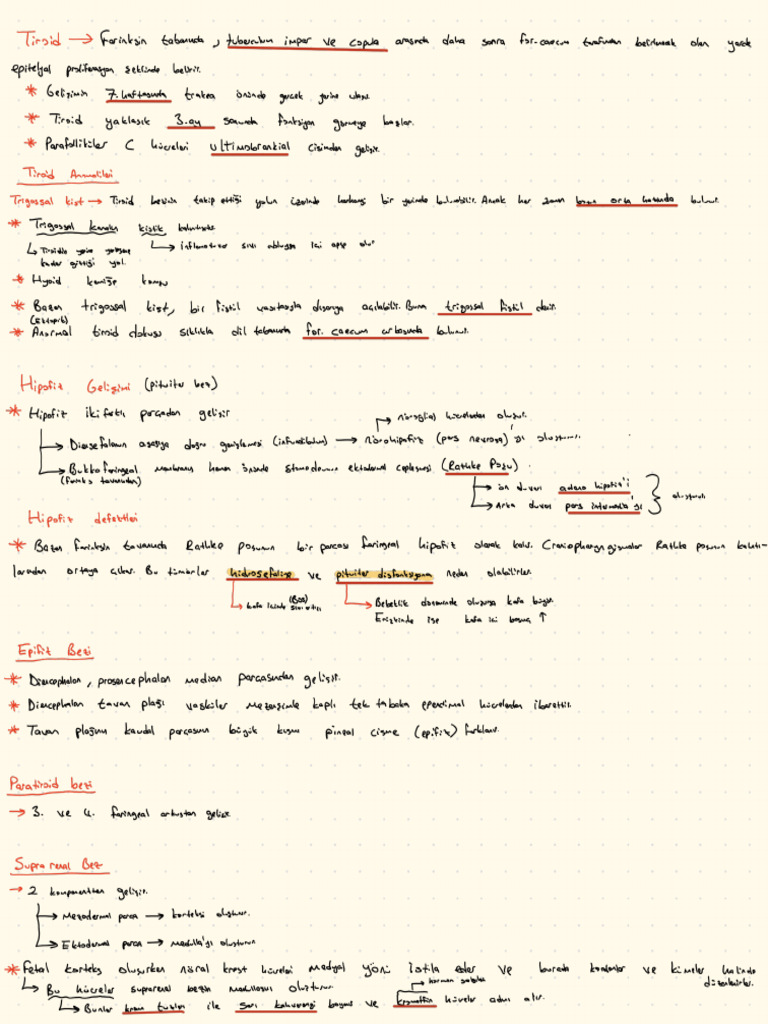 Tiroid → Farinksin tabanında, tuberculum impar ve copula arasında daha sonra for. caecum tarafından belirlenecek olan yerde
epitelyal proliferasyon şeklinde belirir.
* Gelişimin 7. haftasında trakea önünde gerçek yerine ulaşır.
* Tiroid yaklaşık 3. ay sonunda fonksiyon görmeye başlar.
* Parafolliküler C hücreleri ultimobrankial cisimden gelişir.
Tiroid Anomalileri
Trigossal kist → Tiroid bezinin takip ettiği yolun izinde herhangi bir yerinde bulunabilir. Ancak her zaman boyun orta hattında bulunur.
* Trigossal kanalın kistik kalıntısıdır
↳ Tiroidin yerine yerleşene ↳ inflamatuar sıvı
kadar gittiği yol.
* Hyoid kemiğe komşu
* Bazen trigossal kist, bir fistül vasıtasıyla dışarıya açılabilir. Buna trigossal fistül denir.
(Ektopik)
* Anormal tiroid dokusu sıklıkla dil tabanında for. caecum arkasında bulunur.
Hipofiz Gelişimi (pituiter bez)
* Hipofiz iki farklı parçadan gelişir
→ nöroglial hücrelerden oluşur.
→ Diensefalonun aşağıya doğru genişlemesi (infundibulum) → nörohipofiz (pars nervosa)'yı oluşturur.
→ Bukkofaringeal membranın hemen önünde stomodeumun ektodermal ceplenmesi (Rathke Poşu)
(farinks tavanından)
→ ön duvarı adenohipofiz'i
→ Arka duvarı pars intermedia'yı } oluşturur
Hipofiz defektleri
* Bazen farinksin tavanında Rathke poşunun bir parçası faringeal hipofiz olarak kalır. Craniopharyngiomalar Rathke poşunun kalıntı-
larından ortaya çıkar. Bu tümörler hidrosefaliye ve pituiter disfonksiyona neden olabilirler.
↳ kafa içinde sıvı artışı (BOS) ↳ Bebeklik döneminde oluşursa kafa büyür.
Erişkinde ise kafa içi basınç ↑
Epifiz Bezi
* Diencephalon, prosencephalon median parçasından gelişir.
* Diencephalon tavan plağı vasküler mezenşimle kaplı tek tabaka ependimal hücrelerden ibarettir.
* Tavan plağının kaudal parçasının büyük kısmı pineal cisme (epifiz) farklanır.
Paratiroid bezi
→ 3. ve 4. faringeal arkustan gelişir.
Suprarenal Bez
→ 2 komponentten gelişir.
→ Mezodermal parça → korteksi oluşturur.
→ Ektodermal parça → medulla'yı oluşturur
* Fetal korteks oluşurken nöral krest hücreleri medyal yönü istila eder ve burada kordonlar ve kümeler halinde
düzenlenirler.
↳ Bu hücreler suprarenal bezin medullasını oluşturur.
↳ Bunlar krom tuzları ile sarı kahverengi boyanır ve kromaffin hücreler adını alır.